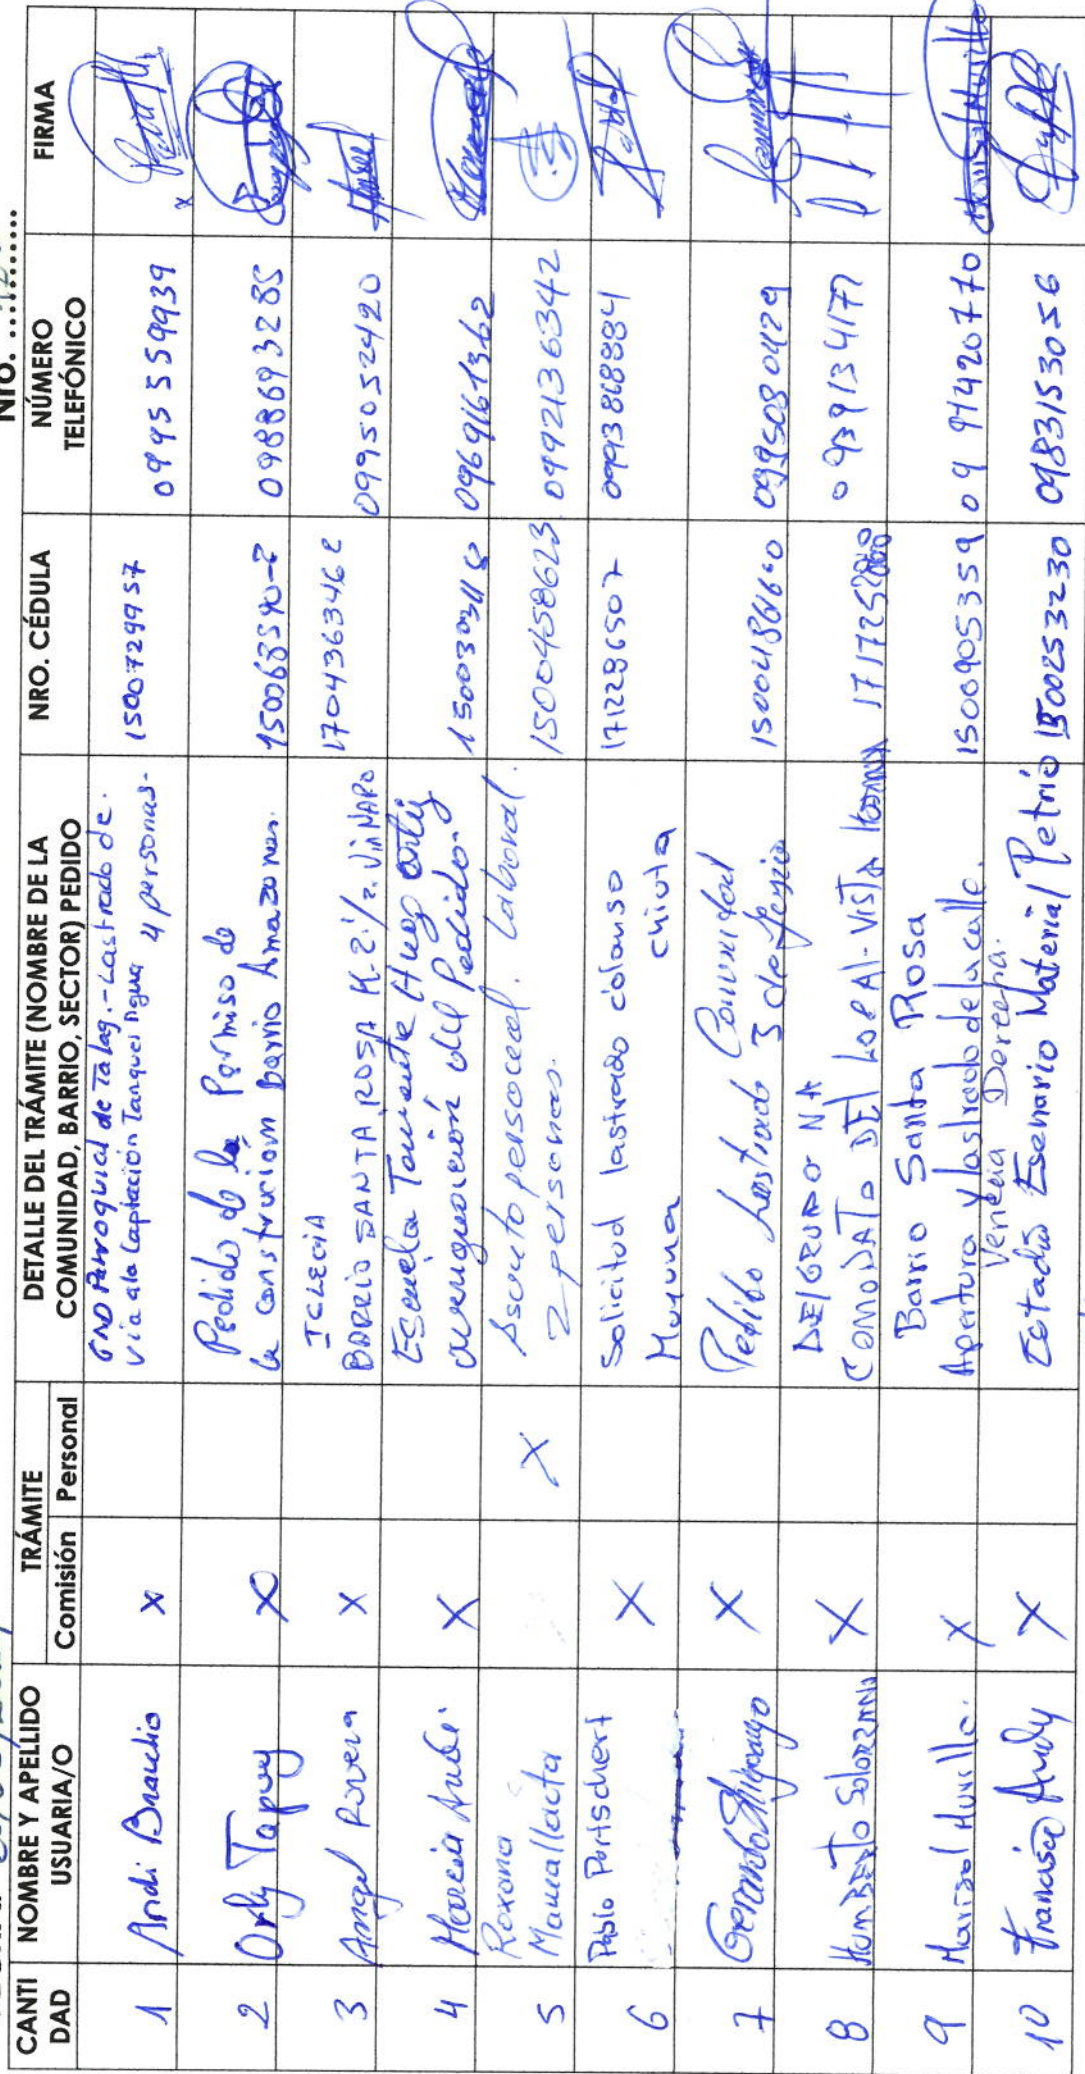 Nro. ..........
CANTI DAD
NOMBRE Y APELLIDO USUARIA/O
TRÁMITE
Comisión
Personal
DETALLE DEL TRÁMITE (NOMBRE DE LA COMUNIDAD, BARRIO, SECTOR) PEDIDO
NRO. CÉDULA
NÚMERO TELEFÓNICO
FIRMA
1
Andi Braulio
x
GAD Parroquial de Talag.- Lastrado de.
via a la Captación Tanques Agua 4 personas-
1500729957
0995559939
2
Orly Tapuy
X
Pedido de la Permiso de
la construcion Barrio Amazonas.
0988693285
3
Angel Rivera
X
IGLECIA
BARRIO SANTA ROSA K.2 1/2. Via NAPO
1704363462
0995052420
4
Marcia Andi.
X
Escuela Teniente Hugo Ortiz
inauguración del Pedido.
0969161362
5
Roxana
Mamallacta
X
Asunto persocal. Laboral.
2 personas.
1500458623
0992136342
6
Pablo Portschert
X
Solicitud lastrado colonso
Muyuna chiuta
1712286507
0993868884
7
Gerardo Shiguango
X
Pedido Lastrado Comunidad
3 de Junio
0995080429
8
HUMBERTO SOLORZANO
X
DEL GRUPO NA
COMODATO DEL LOCAL - VISTA
0939134177
9
Marisol Murillo.
X
Barrio Santa Rosa
Apertura y lastrado de la calle.
1500905359
0991420770
Marisol Murillo
10
Francisco Andy
X
Venecia Derecha.
Estadio Esenario Material Petrio
1500253230
0983153056